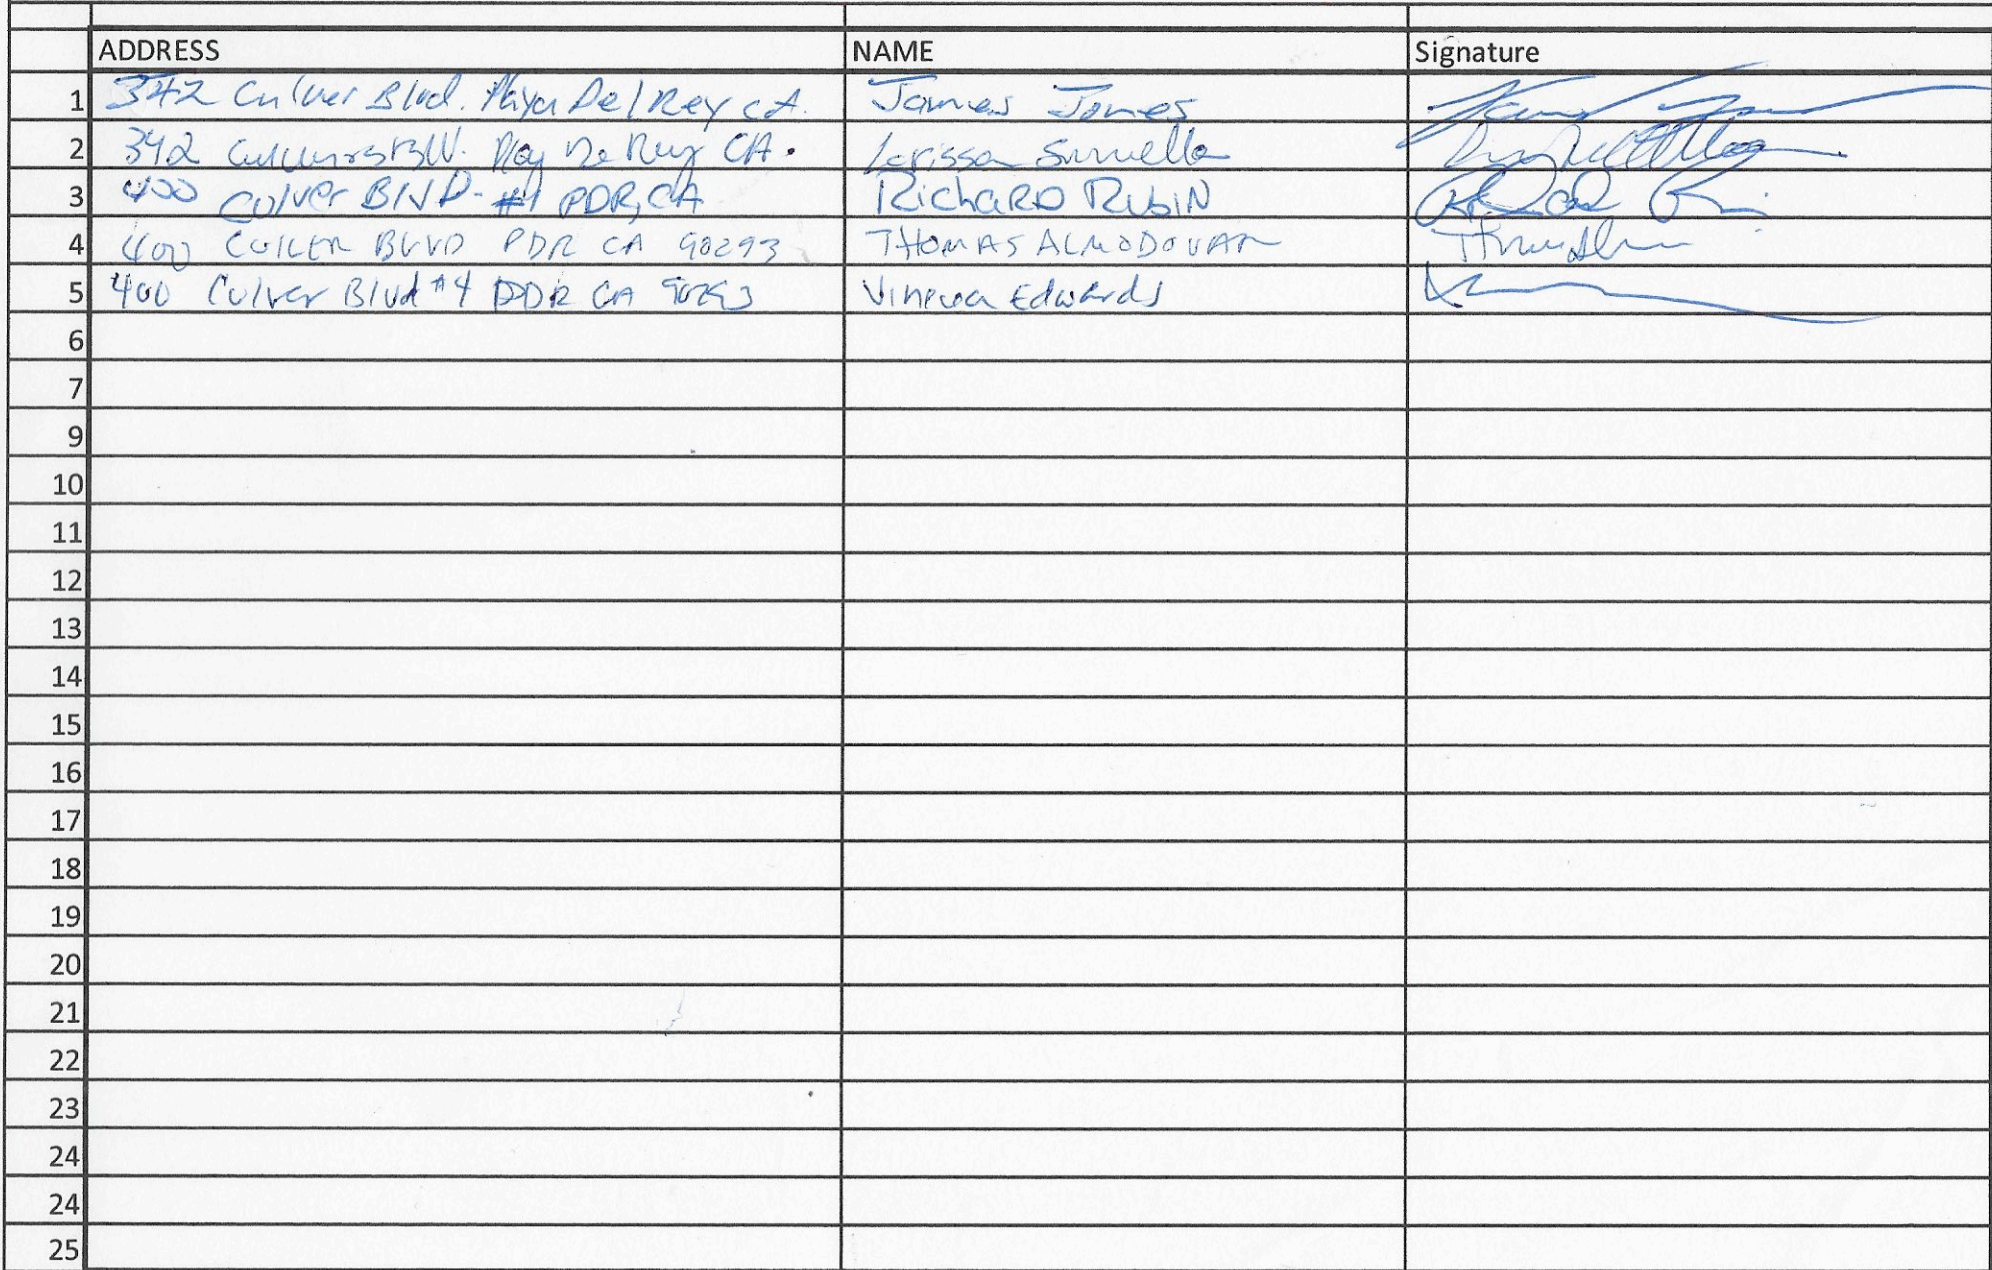 ADDRESS NAME Signature
1 342 Culver Blvd. Playa Del Rey CA. James Jones
2 342 Blv. Play De Rey CA. Larissa
3 400 Culver BLVD. #1 PDR, CA Richard Rubin
4 400 CULVER BLVD PDR CA 90293 THOMAS ALMODOVAR
5 400 Culver Blvd #4 PDR CA 90293 Edwards
6
7
9
10
11
12
13
14
15
16
17
18
19
20
21
22
23
24
24
25